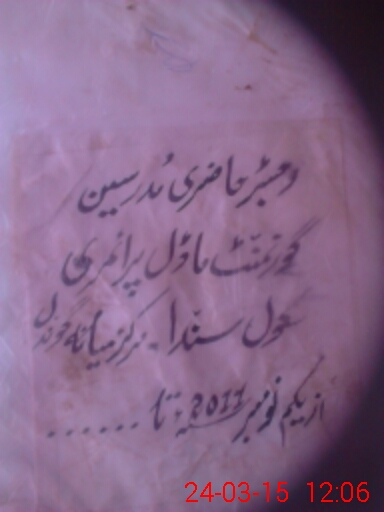 رجسٹر حاضری مُدرسین
گورنمنٹ ماڈل پرائمری
سکول سندا۔ مرکز میانہ گوندل
از یکم نومبر 2011ء تا ......
24-03-15 12:06